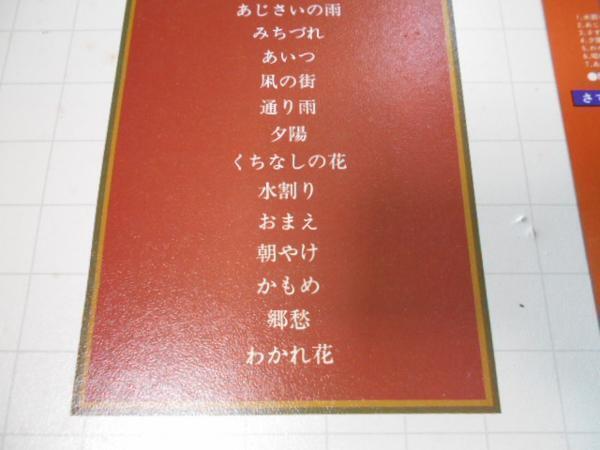 あじさいの雨
みちづれ
あいつ
凩の街
通り雨
夕陽
くちなしの花
水割り
おまえ
朝やけ
かもめ
郷愁
わかれ花